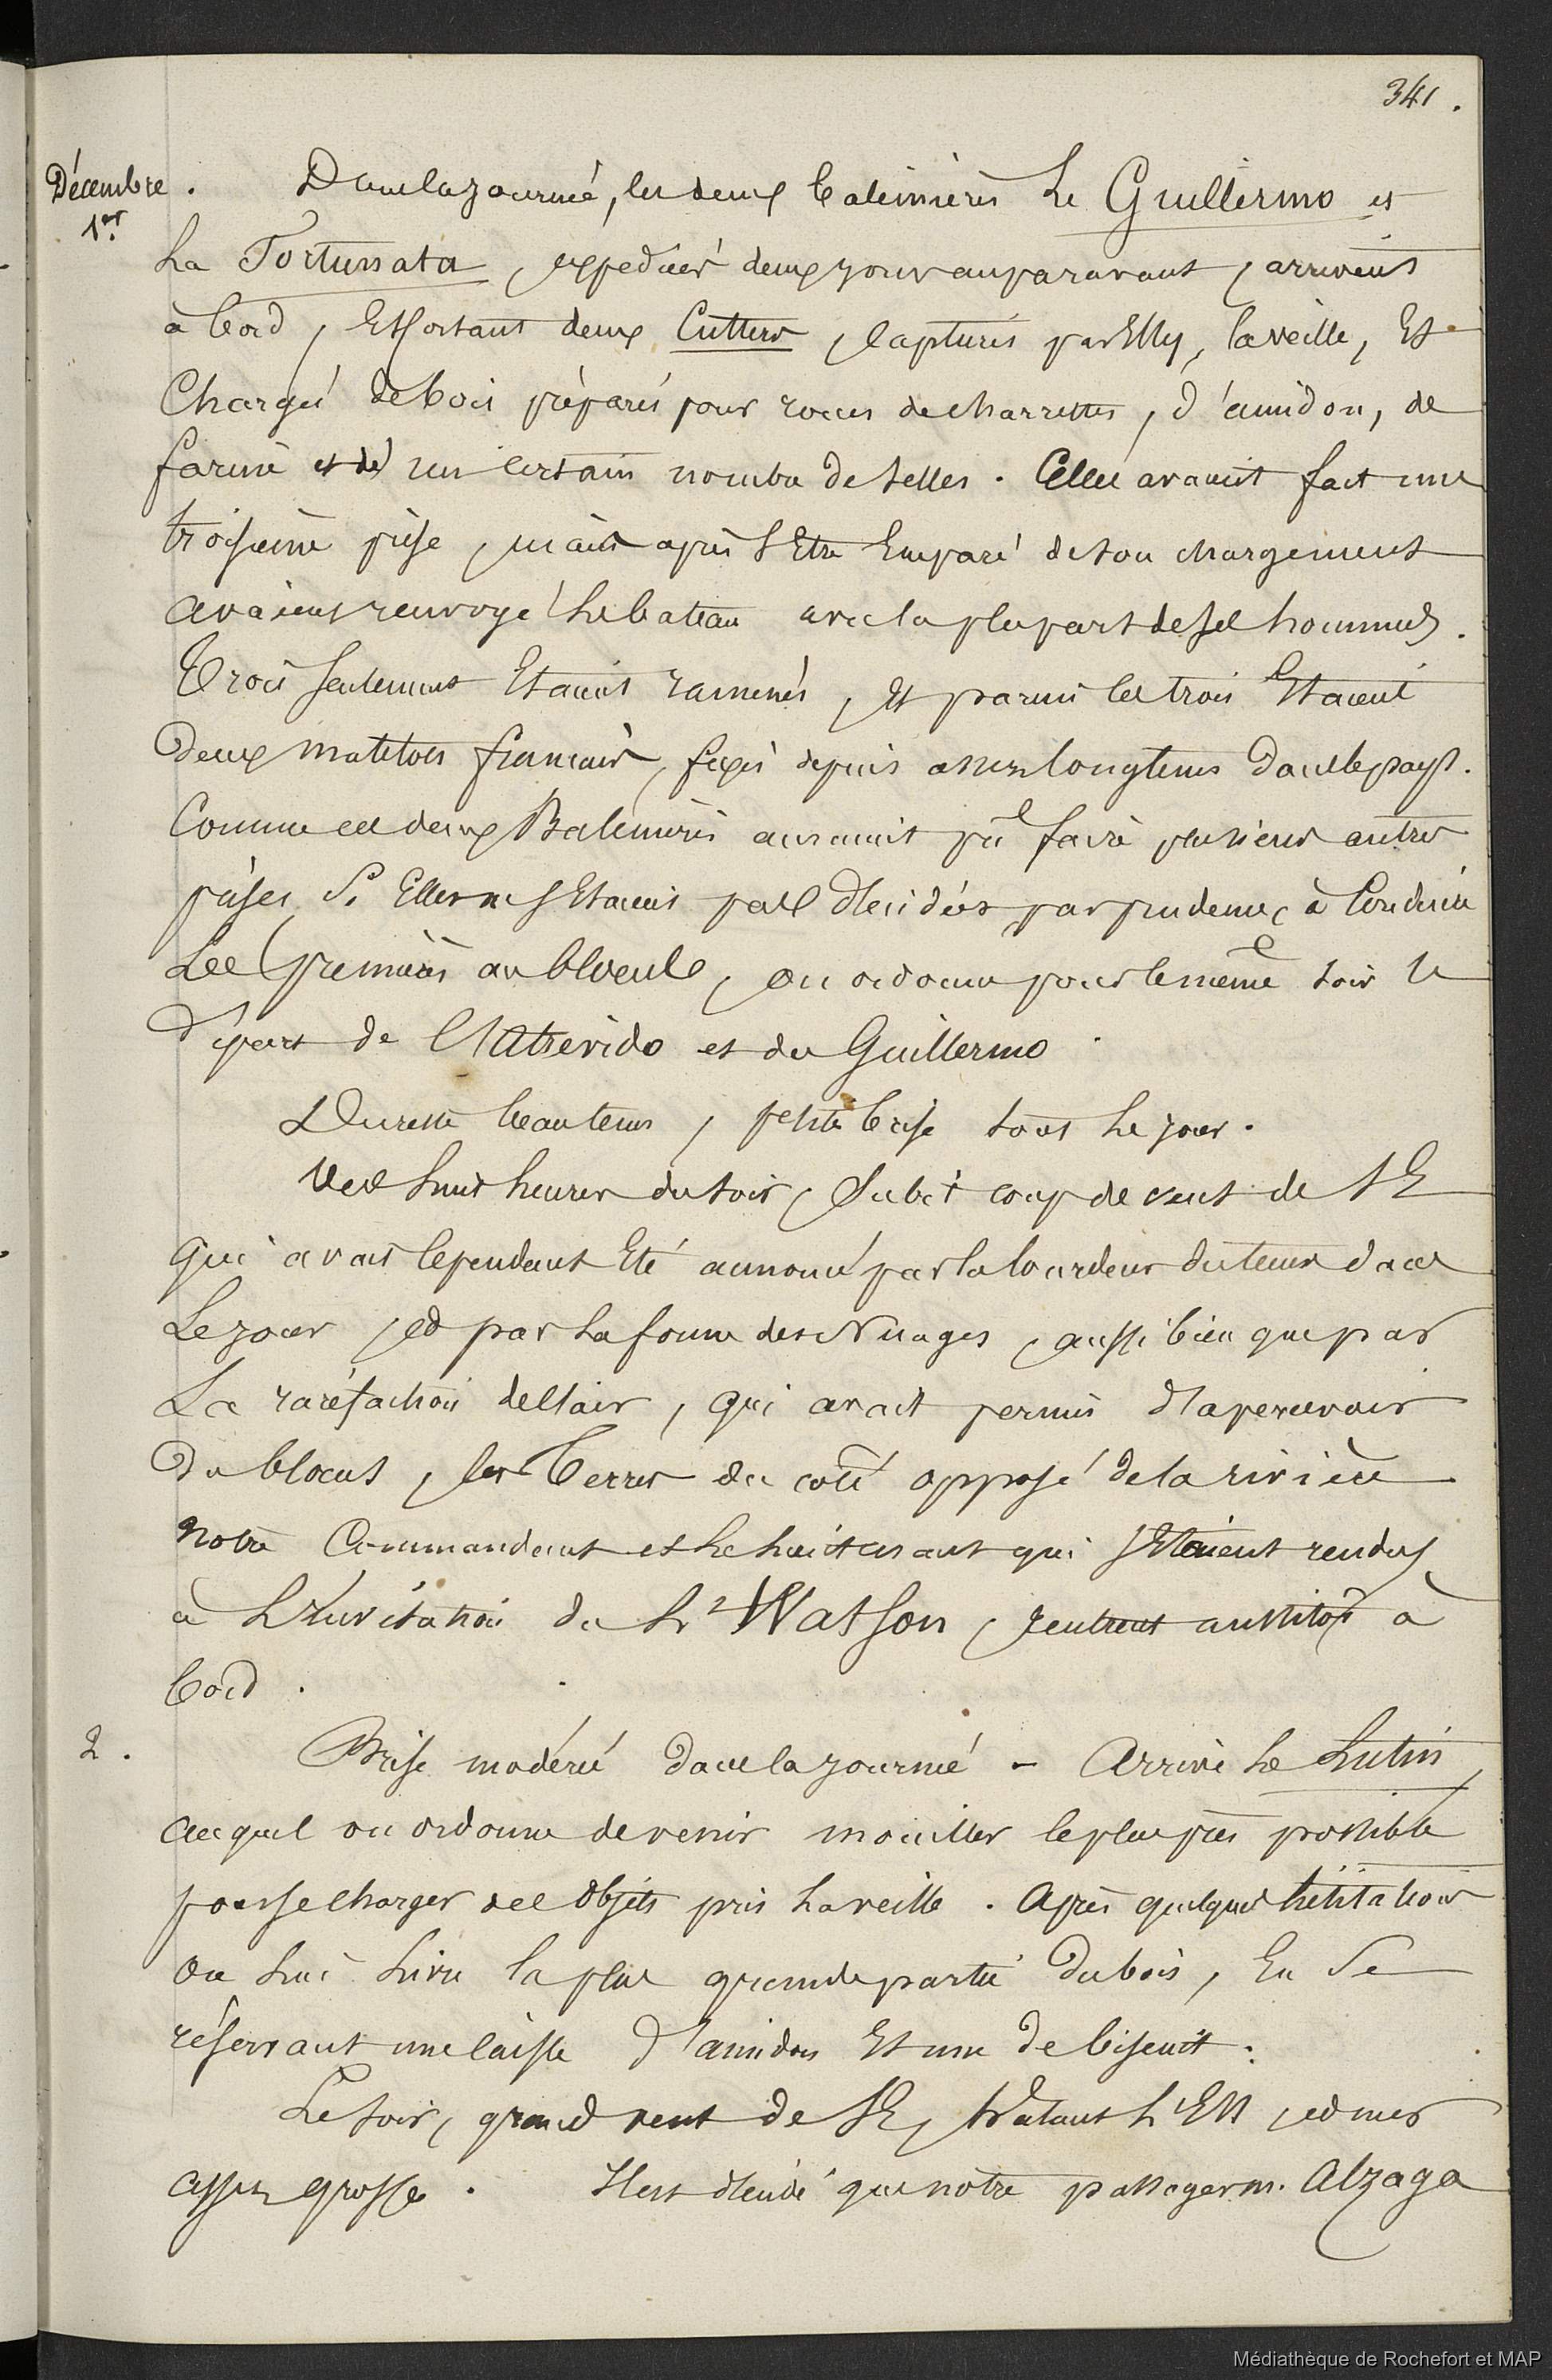 341.
Décembre. Dans la journée, les deux baleinières Le Guillermo et
1er
La Fortunata, expédiées deux jours auparavant, arrivent
à bord, escortant deux Cutters, capturés par elles, la veille, Et
Chargés de bois préparés pour roues de charrettes, d'amidon, de
farine et de un certain nombre de selles. Elles avaient fait une
troisième prise, mais après s'Etre Emparé de son chargement
avaient renvoyé Le bateau avec la plupart de ses hommes.
Trois seulement Etaient ramenés, Et parmi les trois Etaient
Deux matelots français, fixés depuis assez longtems dans le pays.
Comme ces deux Baleinières auraient pu faire plusieurs autres
prises, Si Elles ne s'Etaient pas décidées par prudence à Conduire
Les premières au blocus, on ordonne pour le même soir le
départ de l'Atrevido et du Guillermo.
Du reste beau tems, petite brise tout Le jour.
Vers huit heures du soir, Subit coup de vent de SE
Qui avait Cependant Eté annoncé par la lourdeur du tems dans
Le jour, et par La forme des Nuages, aussi bien que par
La raréfaction de l'air, qui avait permis d'apercevoir
Du blocus, les Terres du côté opposé de la rivière
Notre Commandant et Le Lieutenant qui s'Etaient rendus
à L'Invitation du Lt Watson, rentrent aussitôt à
bord.
2. Brise modérée dans la journée - Arrive Le Lutin,
auquel on ordonne de venir mouiller le plus près possible
pour se charger des Objets pris La veille. Après quelques hésitations
on Lui Livre la plus grande partie Du bois, En Se
réservant une Caisse d'amidon Et une de biscuit.
Le soir, grand vent de SE, halant L'Est, et mer
assez grosse. Il est décidé que notre passager m. Alzaga
Médiathèque de Rochefort et MAP